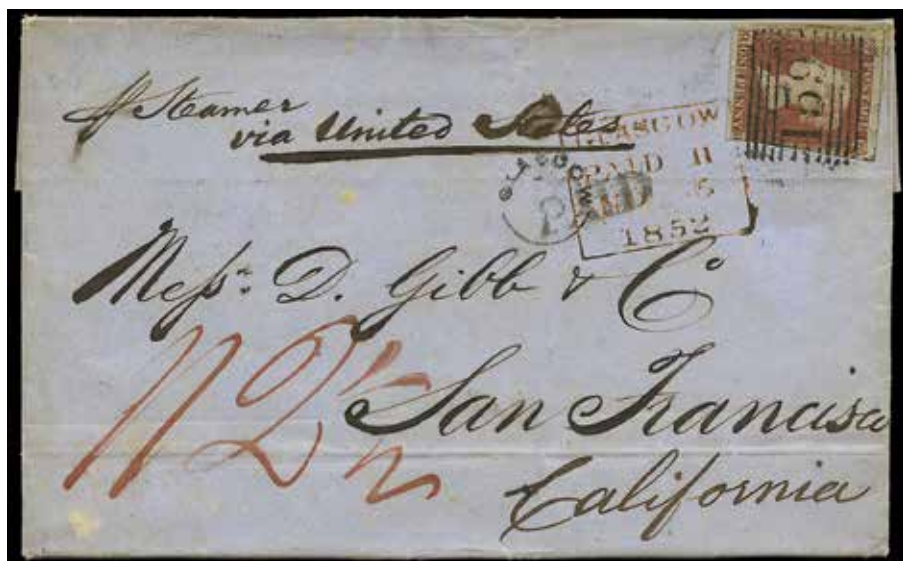 pr Steamer
via United States
GLASGOW
PAID 11
1852
GLASGOW
PAID
159
Messrs. D. Gibb & Co
1/2½
San Francisco
California